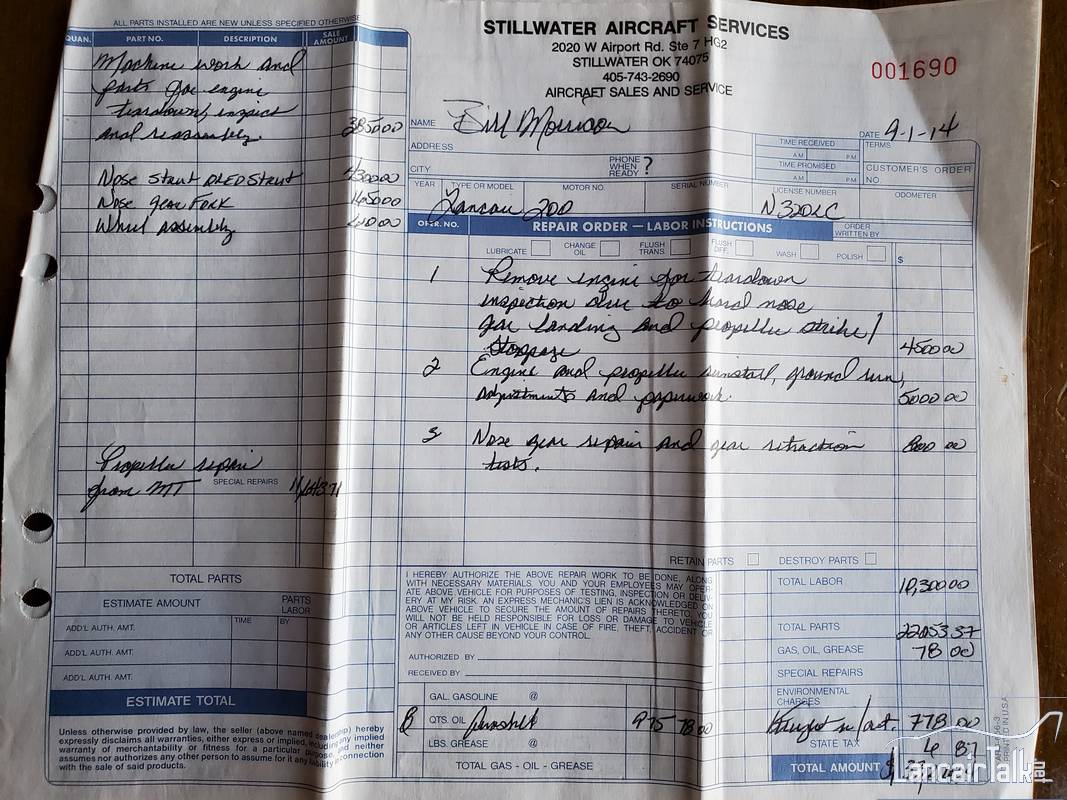 ALL PARTS INSTALLED ARE NEW UNLESS SPECIFIED OTHERWISE
QUAN. PART NO. DESCRIPTION SALE AMOUNT
Machine work and
parts for engine
teardown, inspect
and reassembly. 3850 00
Nose strut OLEO Strut
Nose gear Fork 1650 00
Wheel assembly
Propeller repair
from MT SPECIAL REPAIRS
TOTAL PARTS
ESTIMATE AMOUNT PARTS LABOR
ADD'L AUTH. AMT. TIME BY
ADD'L AUTH. AMT.
ADD'L AUTH. AMT.
ESTIMATE TOTAL
Unless otherwise provided by law, the seller (above named dealership) hereby
expressly disclaims all warranties, either express or implied, including any implied
warranty of merchantability or fitness for a particular purpose, and neither
assumes nor authorizes any other person to assume for it any liability in connection
with the sale of said products.
STILLWATER AIRCRAFT SERVICES
2020 W Airport Rd. Ste 7 HG2
STILLWATER OK 74075
405-743-2690
AIRCRAFT SALES AND SERVICE
001690
NAME Bill Morrison
DATE 9-1-14
ADDRESS
TIME RECEIVED
AM PM
TERMS
CITY
PHONE WHEN READY ?
TIME PROMISED
AM PM
CUSTOMER'S ORDER NO.
YEAR TYPE OR MODEL MOTOR NO. SERIAL NUMBER LICENSE NUMBER ODOMETER
Lancair 200
OPER. NO. REPAIR ORDER — LABOR INSTRUCTIONS ORDER WRITTEN BY
LUBRICATE CHANGE OIL FLUSH TRANS. FLUSH DIFF. WASH POLISH $
1 Remove engine for teardown
inspection due to hard nose
gear landing and propeller strike/
stoppage 4500 00
2 Engine and propeller install, ground run,
adjustments and paperwork. 5000 00
3 Nose gear repair and gear retraction 800 00
tests.
RETAIN PARTS DESTROY PARTS
I HEREBY AUTHORIZE THE ABOVE REPAIR WORK TO BE DONE, ALONG
WITH NECESSARY MATERIALS. YOU AND YOUR EMPLOYEES MAY OPER-
ATE ABOVE VEHICLE FOR PURPOSES OF TESTING, INSPECTION OR DELIV-
ERY AT MY RISK. AN EXPRESS MECHANIC'S LIEN IS ACKNOWLEDGED ON
ABOVE VEHICLE TO SECURE THE AMOUNT OF REPAIRS THERETO. YOU
WILL NOT BE HELD RESPONSIBLE FOR LOSS OR DAMAGE TO VEHICLE
OR ARTICLES LEFT IN VEHICLE IN CASE OF FIRE, THEFT, ACCIDENT OR
ANY OTHER CAUSE BEYOND YOUR CONTROL.
AUTHORIZED BY
RECEIVED BY
TOTAL LABOR 10,300 00
TOTAL PARTS
GAS, OIL, GREASE 78 00
SPECIAL REPAIRS
ENVIRONMENTAL CHARGES
778 00
STATE TAX
TOTAL AMOUNT
GAL. GASOLINE @
8 QTS. OIL Aeroshell 9 75 78 00
LBS. GREASE @
TOTAL GAS - OIL - GREASE
PRINTED IN USA
LancairTalk.net